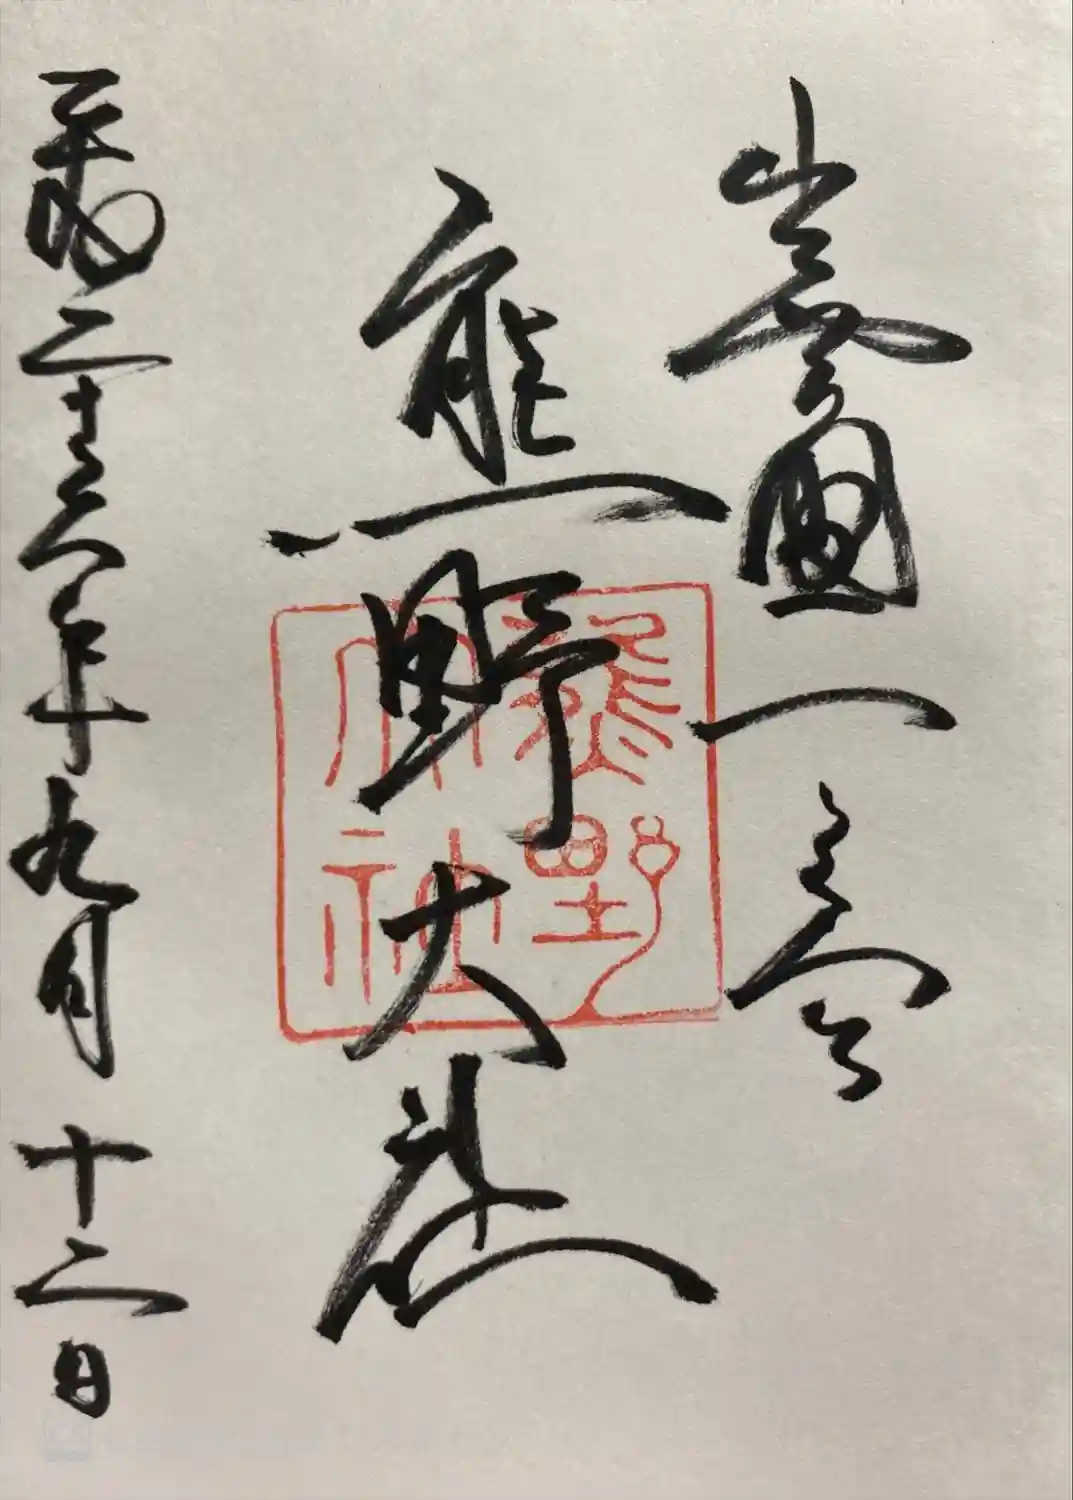 出雲國一之宮
熊野大社
平成二十六年九月十二日
熊野
大社